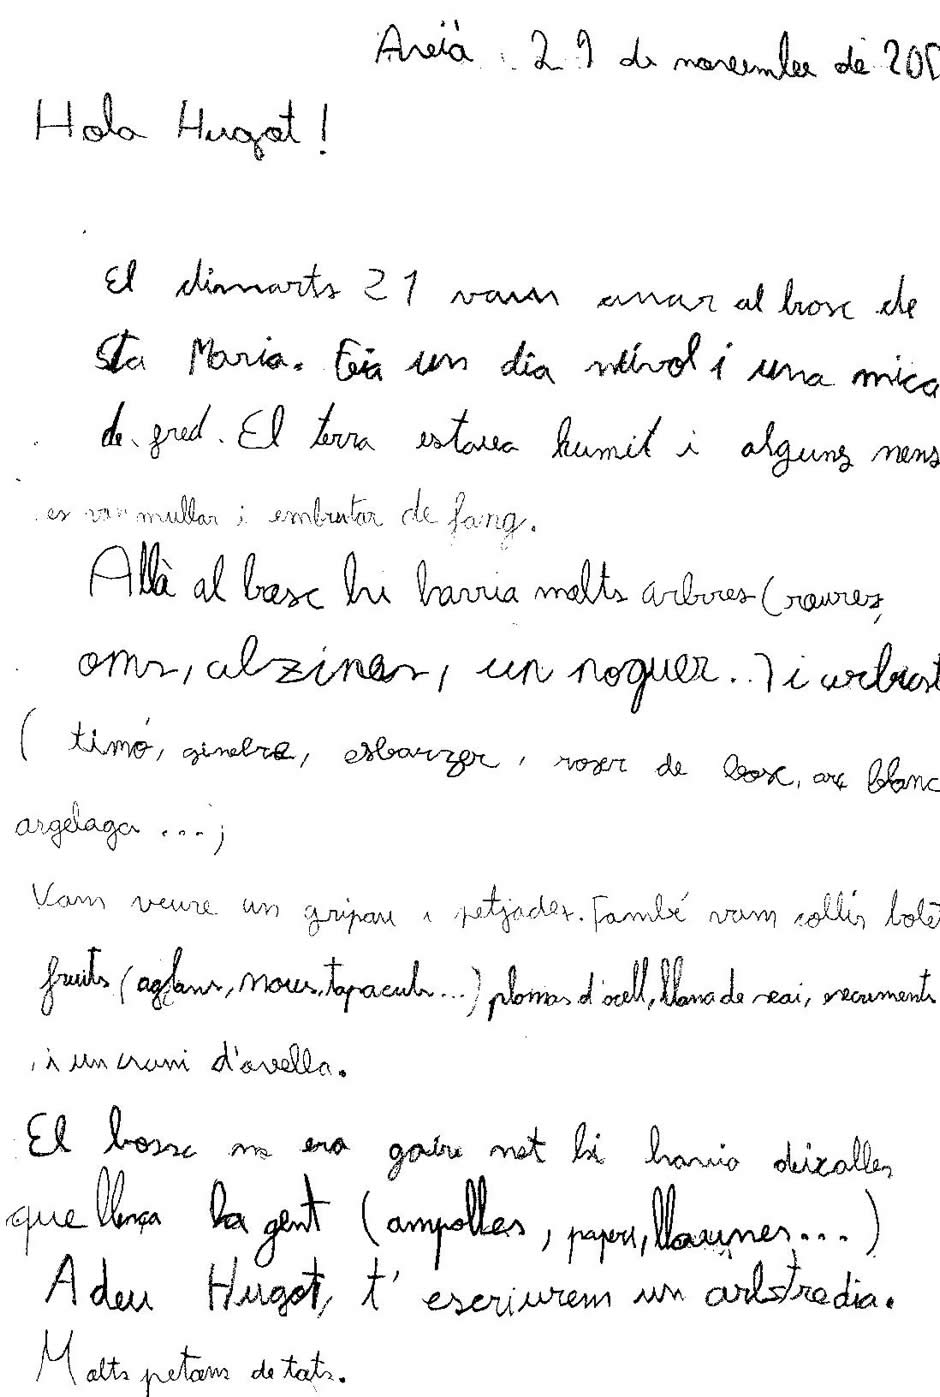 Areià 29 de novembre de 200
Hola Hugot!
El dimarts 21 vam anar al bosc de
Sta Maria. Feia un dia núvol i una mica
de fred. El terra estava humit i alguns nens
es van mullar i embrutar de fang.
Allà al bosc hi havia molts arbres (roures,
oms, alzines, un noguer...) i arbust
( timó, ginebre, esbarzer, roser de bosc, arç blanc
argelaga ...;
Vam veure un gripau i petjades. També vam collir bolet
fruits (aglans, nous, tapaculs...) plomes d'ocell, llana de xai, excrements
, i un crani d'ovella.
El bosc no era gaire net hi havia deixalles
que llença la gent (ampolles, papers, llaunes...)
Adeu Hugot, t'escriurem un altre dia.
Molts petons de tots.